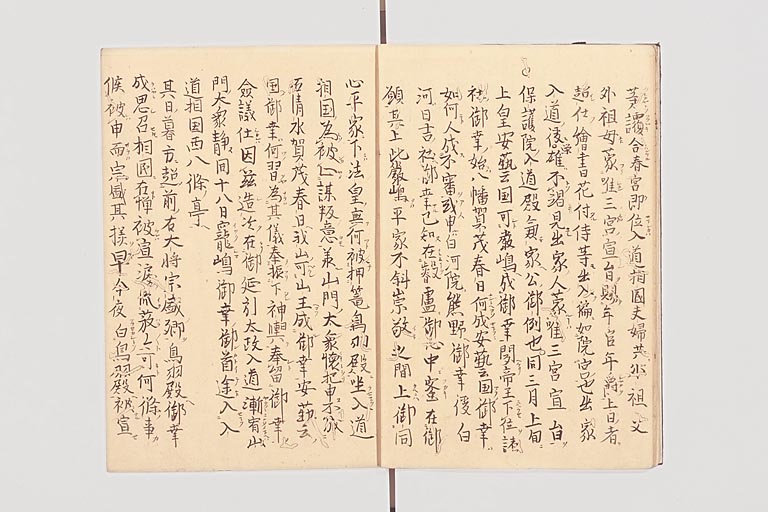 茅讃合春宮即位入道相国夫婦共外祖父
外祖母蒙准三宮宣旨賜年官年爵上日者
超仕繪書花付侍等出入簫如院宮世出家
入道後雄不詔見出家人蒙准三宮宣旨
保護院入道殿氣家公御例也同三月上旬
上皇安藝国可嚴嶋成御幸聞帝王下位諸
社御幸始八幡賀茂春日何成安藝国御幸
如何人成不審或申白河院熊野御幸後白
河日吉社御幸已知在叡慮御心中蜜在御
願其上此嚴嶋平家不斜崇敬之間上御同
心平家下法皇無何被押篭鳥羽殿坐入道
相国為被仁謀叛意兼山門大衆憤把申不敢
石清水賀茂春日我山可山王成御幸安藝
国御幸何習為其儀奉振下神輿奉留御幸
僉議仕因茲造次在御延引太政入道漸宥山
門大衆静間十八日嚴嶋御幸御首途入入
道相国西八條亭
其日暮方超前右大将宗盛卿鳥羽殿御幸
成思召相国在憚被宣涙流敢上可何條事
候被申而宗盛其様早今夜白鳥羽殿被宣